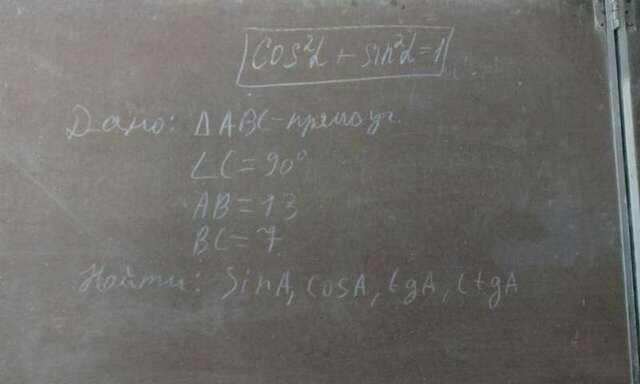 cos²α + sin²α = 1
Дано: ΔABC - прямоуг.
∠C = 90°
AB = 13
BC = 7
Найти: SinA, cosA, tgA, ctgA